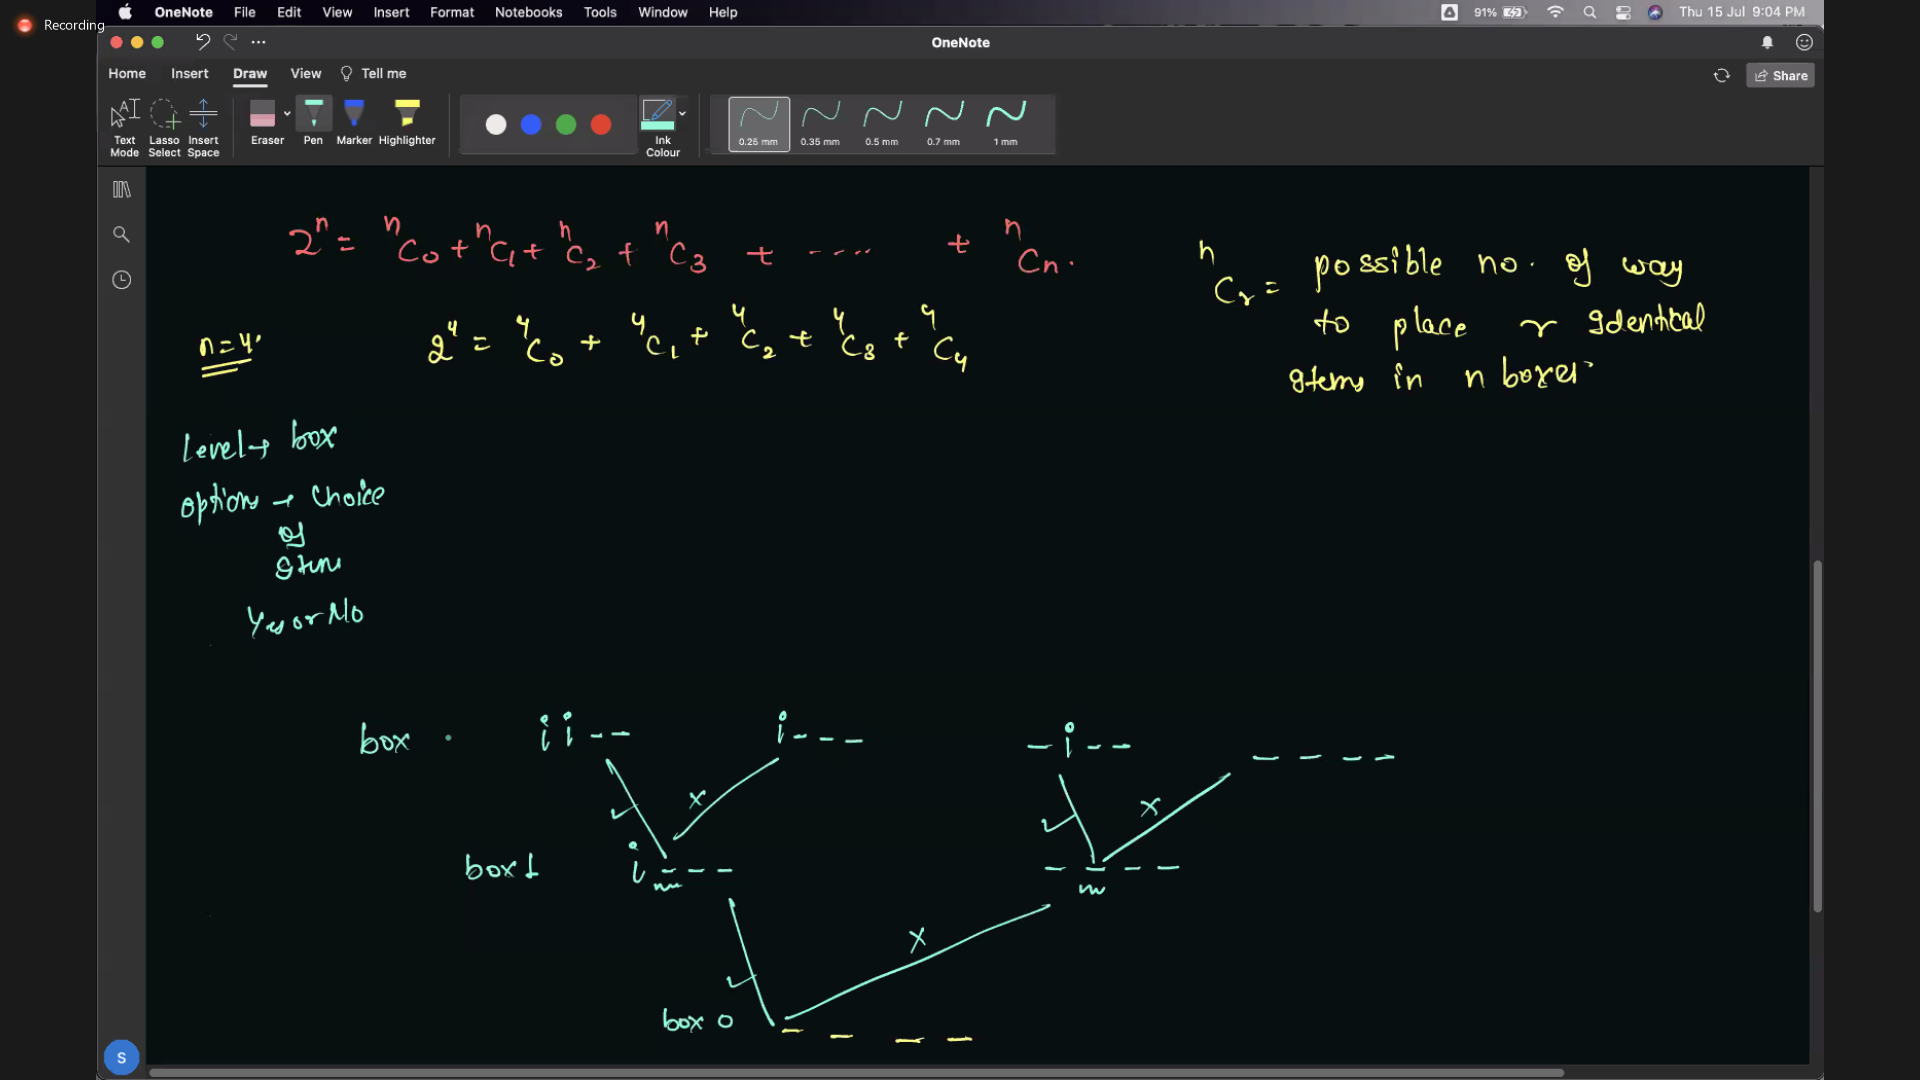 Recording
OneNote File Edit View Insert Format Notebooks Tools Window Help
91% Thu 15 Jul 9:04 PM
OneNote
Home Insert Draw View Tell me
Share
Text Mode
Lasso Select
Insert Space
Eraser
Pen
Marker
Highlighter
Ink Colour
0.25 mm
0.35 mm
0.5 mm
0.7 mm
1 mm
2ⁿ = ⁿC₀ + ⁿC₁ + ⁿC₂ + ⁿC₃ + ..... + ⁿCₙ.
ⁿCᵣ = possible no. of way
to place r Identical
Items in n boxes
n=4.
2⁴ = ⁴C₀ + ⁴C₁ + ⁴C₂ + ⁴C₃ + ⁴C₄
level → box
options → choice
of
Item
Yes or No
box i i - - i - - - - i - - - - - -
✓ x ✓ x
box 1 i - - - - - - -
✓ x
box 0 - - - -
S